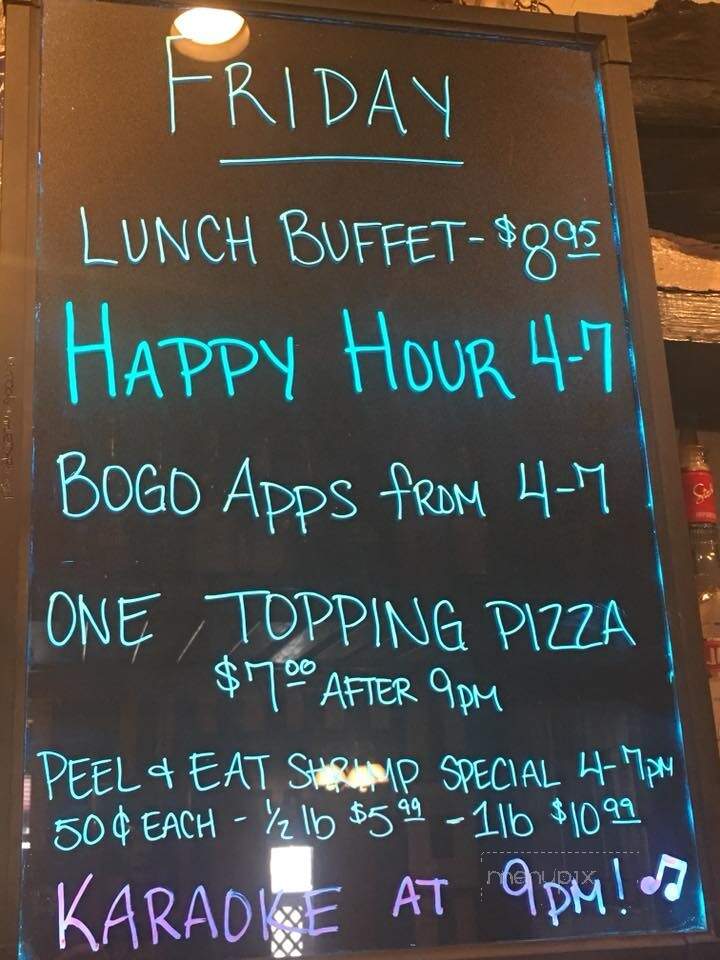 FRIDAY
LUNCH BUFFET - $8.95
HAPPY HOUR 4-7
BOGO APPS FROM 4-7
ONE TOPPING PIZZA
$7.00 AFTER 9PM
PEEL & EAT SHRIMP SPECIAL 4-7PM
50¢ EACH - 1/2 lb $5.99 - 1lb $10.99
KARAOKE AT 9PM! ♫
menupix